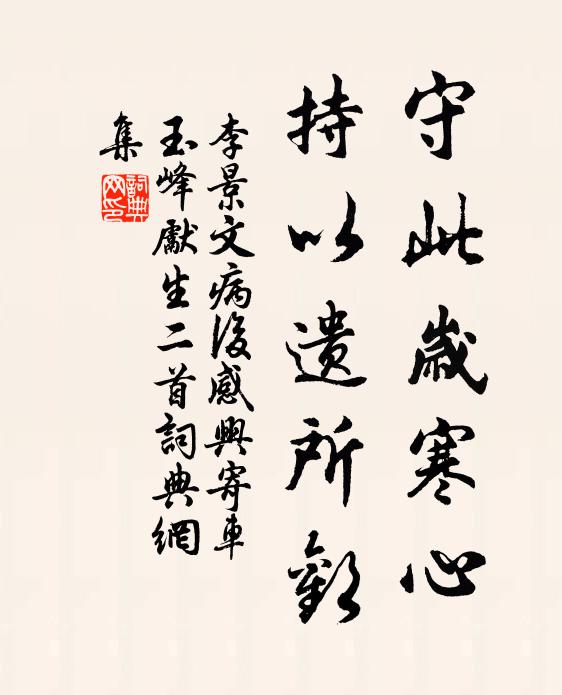 守此歲寒心
持以遺所歡
李景文病後感興寄車
玉峰獻生二首詞典網
集
詞典
网印